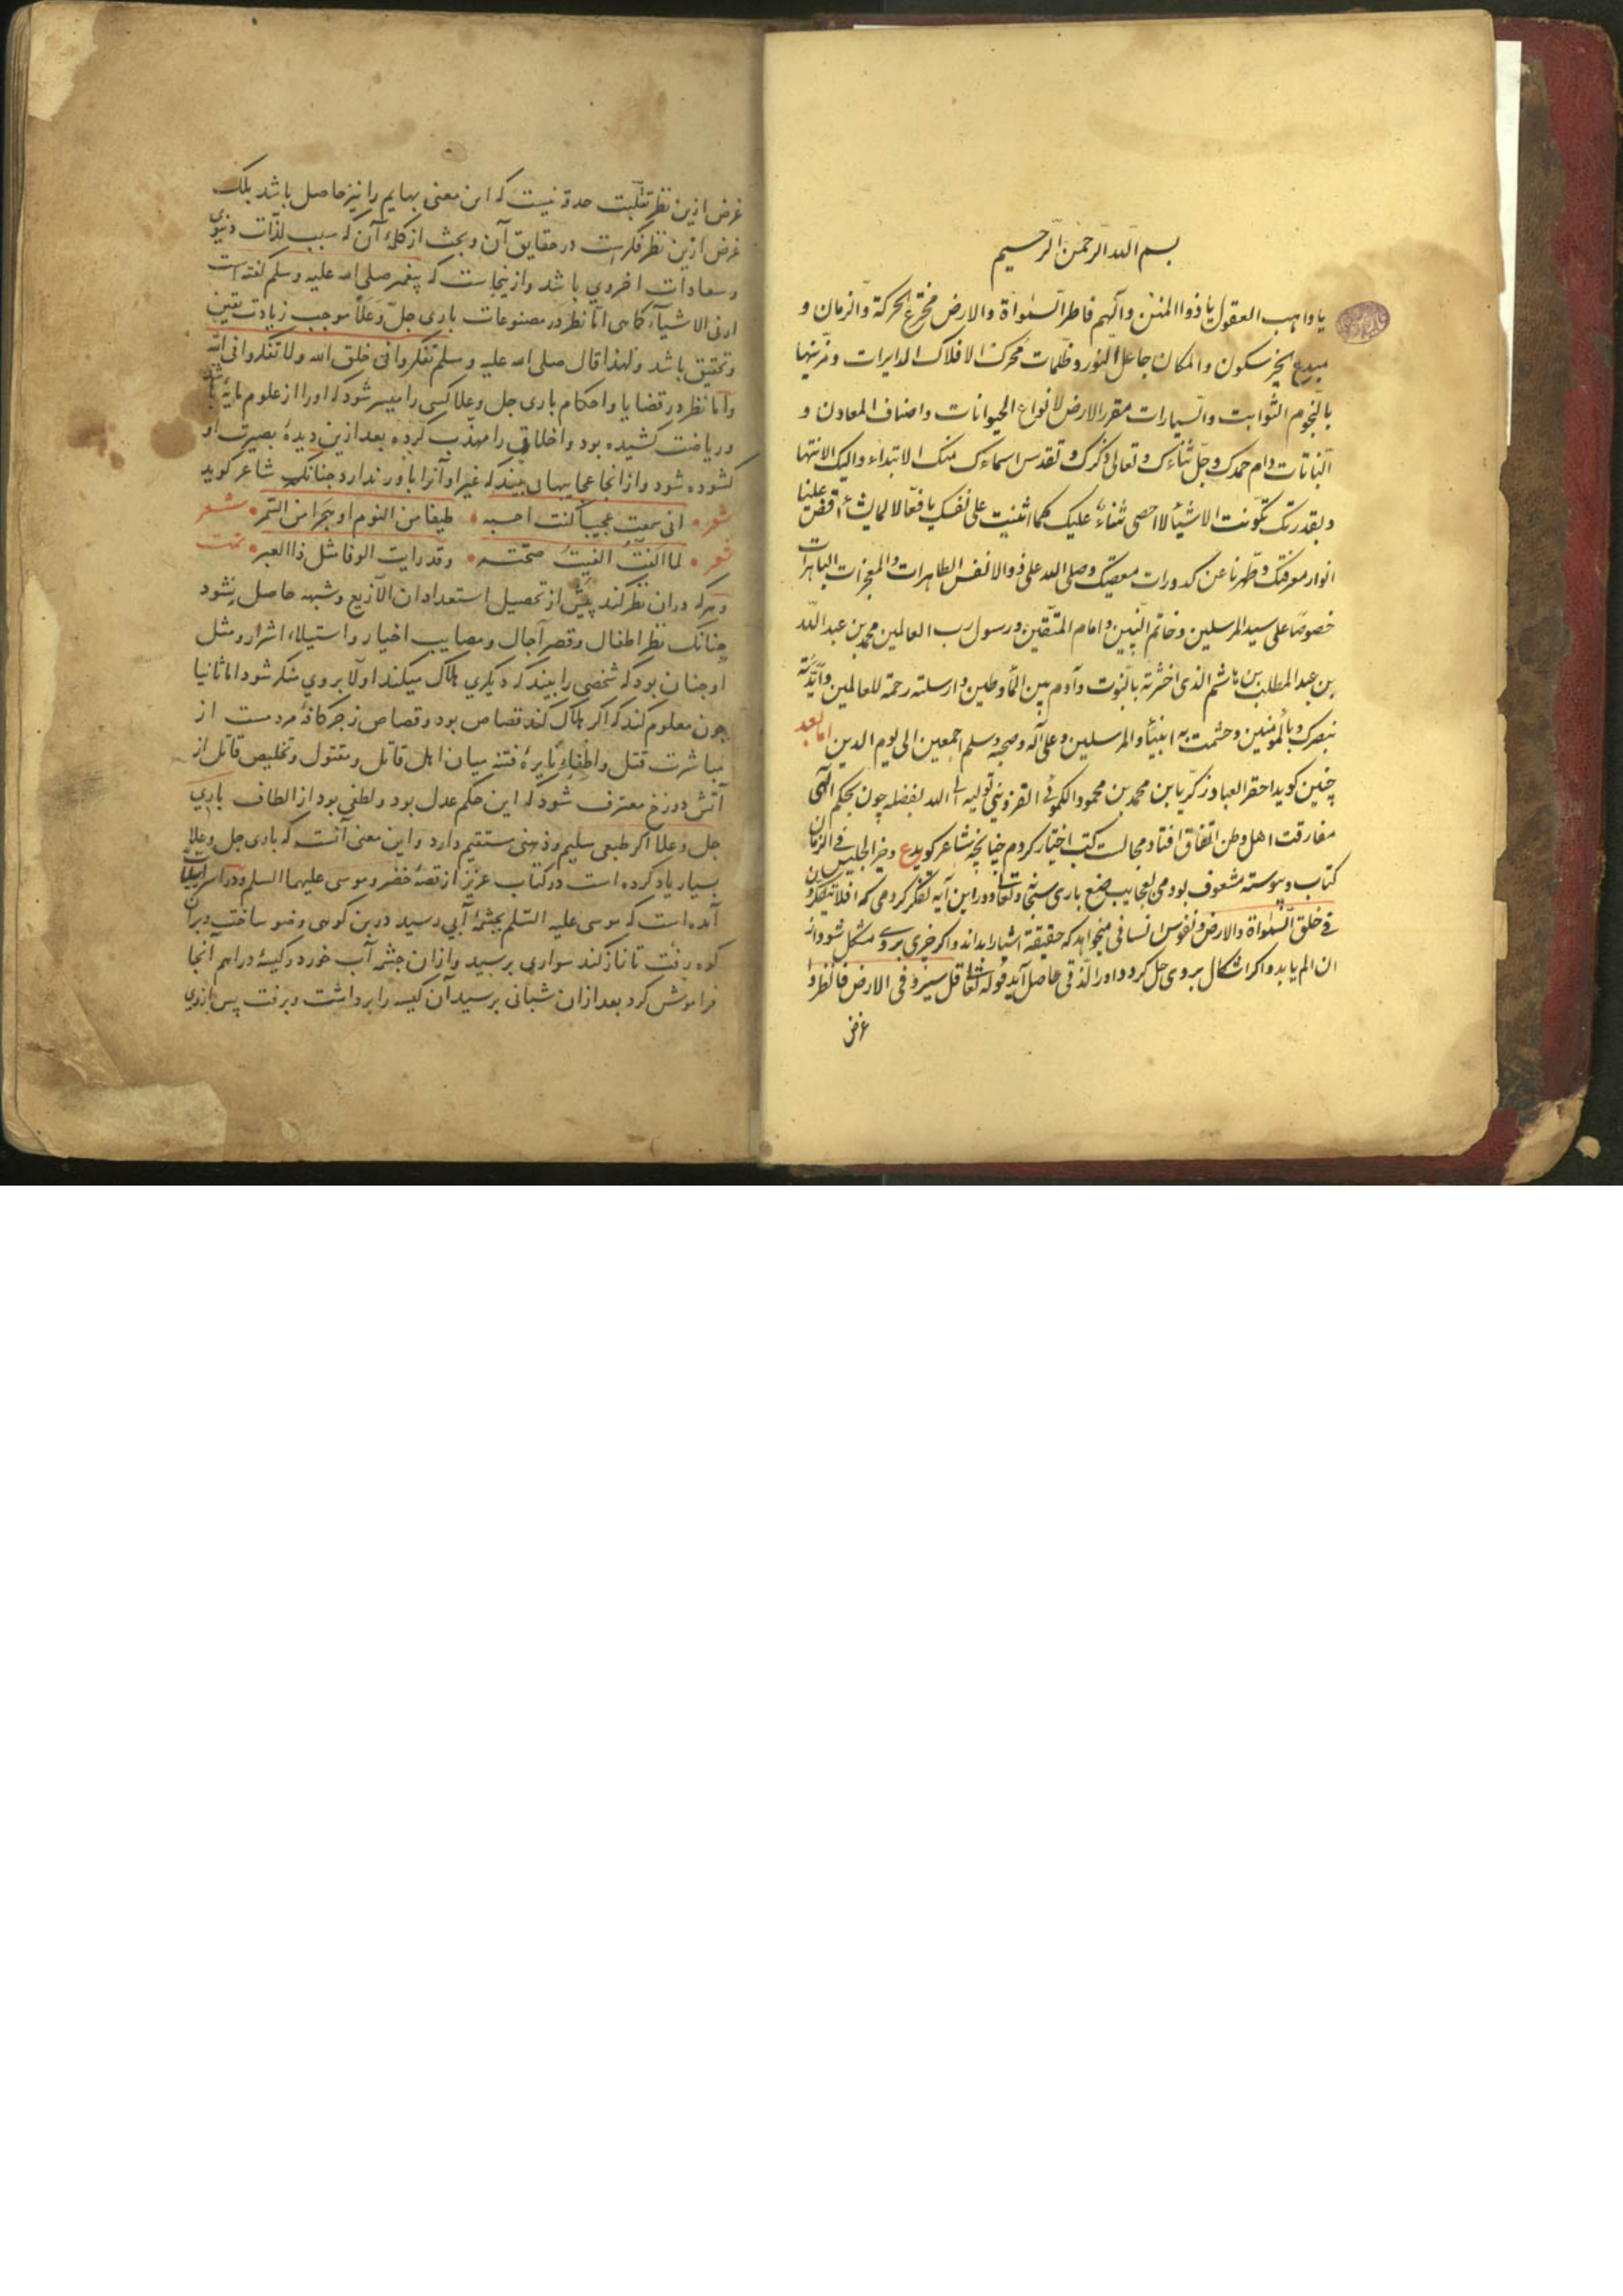 بسم الله الرحمن الرحيم
يا واهب العقول يا ذوا المنن والهم فاطر السموٰاة والارض مخترع الحركة والزمان و
مبدع الحيز سكون والمكان جاعل النور و ظلمات محرك الافلاك الدايرات ومزينها
بالنجوم الثوابت والسيارات مقرر الارض لانواع الحيوانات واصناف المعادن و
النباتات دام حمدك وجل ثناءك وتعالى ذكرك وتقدس اسماءك منك الابتداء واليك الانتها
وبقدرتك تكونت الاشيا لا احصى ثناء عليك كما اثنيت على نفسك يا فعالا لما يشاء افض علينا
انوار معرفتك وطهرنا عن كدورات معصيتك وصلى الله على ذوالانفس الطاهرات والمعجزات الباهرات
خصوصا على سيد المرسلين وخاتم النبيين وامام المتقين ورسول رب العالمين محمد بن عبد الله
بن عبد المطلب بن هاشم الذى اخترته بالنبوت وآدم بين الماء وطين وارسلته رحمة للعالمين وايدته
بنصرك وبالمومنين وختمت به انبياء والمرسلين وعلى آله وصحبه وسلم اجمعين الى يوم الدين اما بعد
چنين كويد احقر العباد زكريا بن محمد بن محمود الكموني القزويني توليه الله بفضله چون بحكم الهى
مفارقت اهل وطن اتفاق افتاد مجالست كتب اختيار كردم چنانچه شاعر كويد ع وخير الجليس فى الزمان
كتاب وپيوسته مشعوف بودمى بعجايب صنع بارى سبحانه وتعالى ودر اين آيه تفكر كردمى كه افلا يتفكرون
فى خلق السموٰاة والارض ونفوس انسانى ميخواهد كه حقيقة اشيا را بداند واكر چيزى بروى مشكل شود از
ان الم يابد واكر اشكال بروى حل كردد اورا لذتى حاصل آيد قوله تعالى قل سيروا فى الارض فانظروا
غرض
غرض ازين نظر تقلبت حدقه نيست كه اين معنى بهايم را نيز حاصل باشد بلك
غرض ازين نظر فكرست در حقايق آن وبحث از كله آن كه سبب لذات دنيوي
وسعادات اخروي باشد وازينجاست كه پيغمبر صلى الله عليه وسلم كفته است
ارنى الاشياء كما هى اما نظر در مصنوعات بارى جل وعلا موجب زيادت يقين
وتحقيق باشد ولهذا قال صلى الله عليه وسلم تفكروا فى خلق الله ولا تفكروا فى الله
واما نظر در قضايا واحكام بارى جل وعلا كسى را ميسر شود كه اورا از علوم مايه باشد
ورياضت كشيده بود واخلاق را مهذب كرده بعد ازين ديده بصيرت او
كشوده شود واز انجا عجايبها بى بيند كه غير او آنرا باور ندارد چنانك شاعر كويد
شعر • انى سمعت عجيبا كنت احسبه • طيفا من النوم او هجرا من السمر • شعر
شعر • لما الفت الفيت صحته • وقد رايت الوفا مثل ذا العبر • تمت
وهركه دران نظر كند پيش از تحصيل استعداد ان الا زيغ وشبهه حاصل نشود
چنانك نظر اطفال وقصر آجال ومصايب اخيار واستيلاء اشرار ومثل
او چنان بود كه شخصى را بيند كه ديكرى هلاك ميكند اولا بروي منكر شود اما ثانيا
چون معلوم كند كه اكر هلاك كند قصاص بود وقصاص زجر كافه مردمست از
مباشرت قتل واطفاء نايره فتنه ميان اهل قاتل ومقتول وتخليص قاتل از
آتش دوزخ معترف شود كه اين حكم عدل بود ولطفى بود از الطاف باري
جل وعلا اكر طبعى سليم وذهنى مستقيم دارد واين معنى آنست كه بارى جل وعلا
بسيار ياد كرده است در كتاب عزيز از قصه خضر وموسى عليهما السلم ودر اسرائيليات
آمده است كه موسى عليه السلم بچشمه آبي رسيد در بن كوهى وضو ساخت وبران
كوه رفت تا نماز كند سواري برسيد وازان چشمه آب خورد وكيسه دراهم آنجا
فراموش كرد بعد ازان شبانى برسيد آن كيسه را برداشت وبرفت پس ازوي